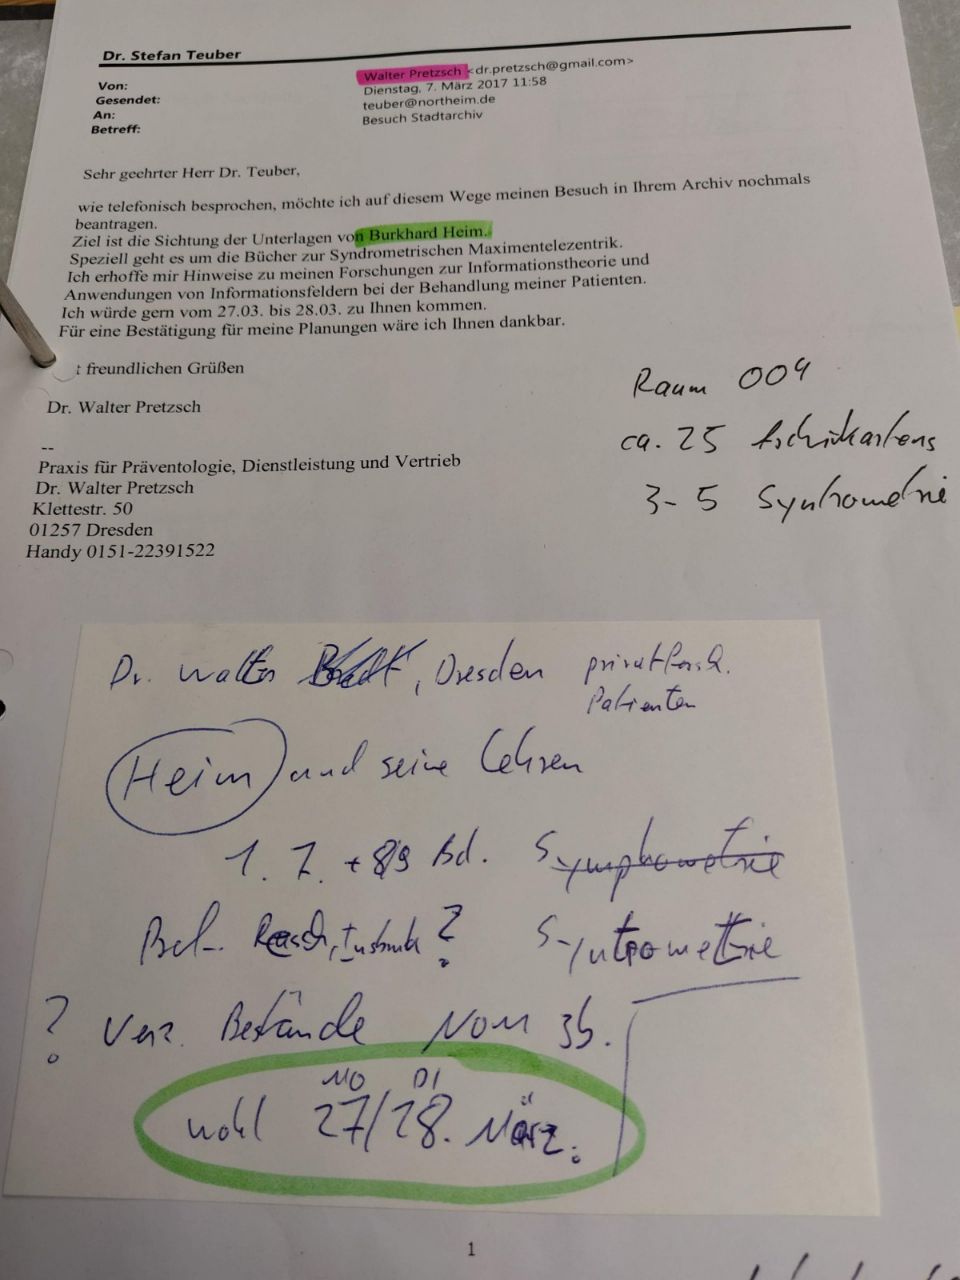 Dr. Stefan Teuber
Von: Walter Pretzsch <dr.pretzsch@gmail.com>
Gesendet: Dienstag, 7. März 2017 11:58
An: teuber@northeim.de
Betreff: Besuch Stadtarchiv
Sehr geehrter Herr Dr. Teuber,
wie telefonisch besprochen, möchte ich auf diesem Wege meinen Besuch in Ihrem Archiv nochmals
beantragen.
Ziel ist die Sichtung der Unterlagen von Burkhard Heim.
Speziell geht es um die Bücher zur Syndrometrischen Maximentelezentrik.
Ich erhoffe mir Hinweise zu meinen Forschungen zur Informationstheorie und
Anwendungen von Informationsfeldern bei der Behandlung meiner Patienten.
Ich würde gern vom 27.03. bis 28.03. zu Ihnen kommen.
Für eine Bestätigung für meine Planungen wäre ich Ihnen dankbar.
t freundlichen Grüßen
Dr. Walter Pretzsch
--
Praxis für Präventologie, Dienstleistung und Vertrieb
Dr. Walter Pretzsch
Klettestr. 50
01257 Dresden
Handy 0151-22391522
Raum 004
ca. 25 Archivkartons
3-5 Syntrometrie
Dr. Walter , Dresden privatforsch.
Patienten
Heim und seine Lehren
1. 7. + 8/9 Bd. Symphometrie
Resch, Innsbruck? Syntrometrie
? Verz. Bestände Nom 36.
MO DI
wohl 27/28. März.
1